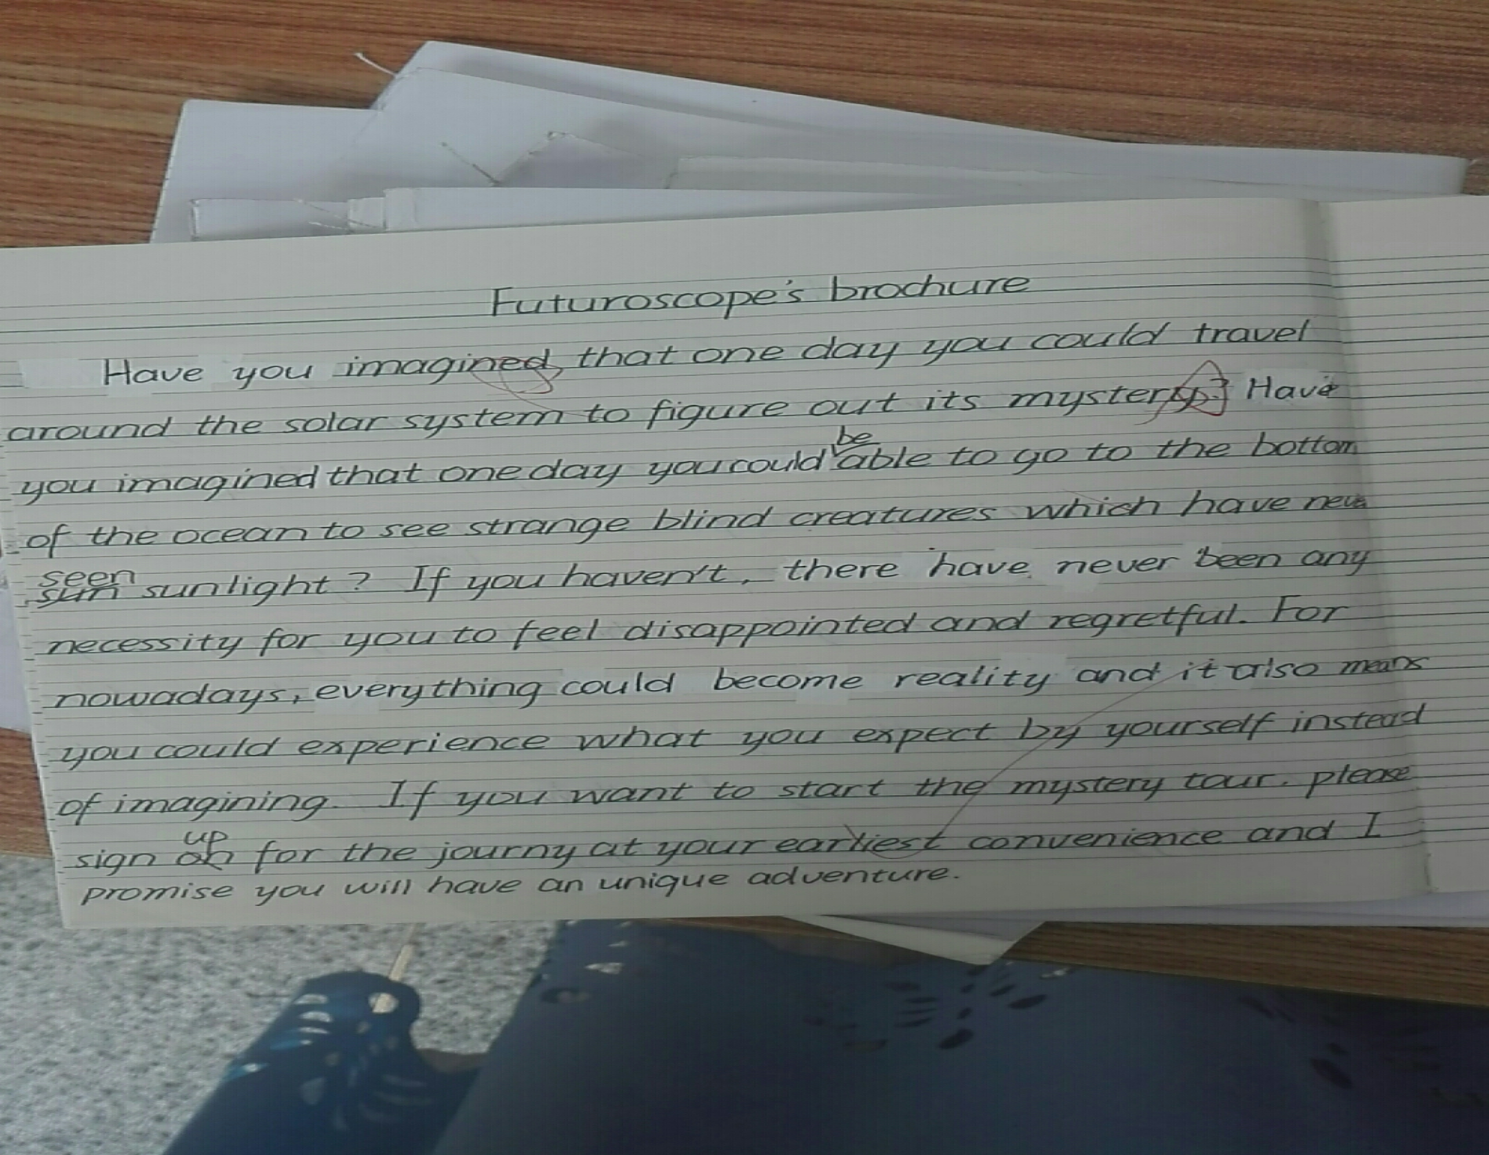 Futuroscope's brochure
Have you imagined, that one day you could travel
around the solar system to figure out its mystery? Have
you imagined that one day you could be able to go to the bottom
of the ocean to see strange blind creatures which have never
seen sunlight? If you haven't, there have never been any
necessity for you to feel disappointed and regretful. For
nowadays, everything could become reality and it also means
you could experience what you expect by yourself instead
of imagining. If you want to start the mystery tour. please
sign up for the journy at your earliest convenience and I
promise you will have an unique adventure.